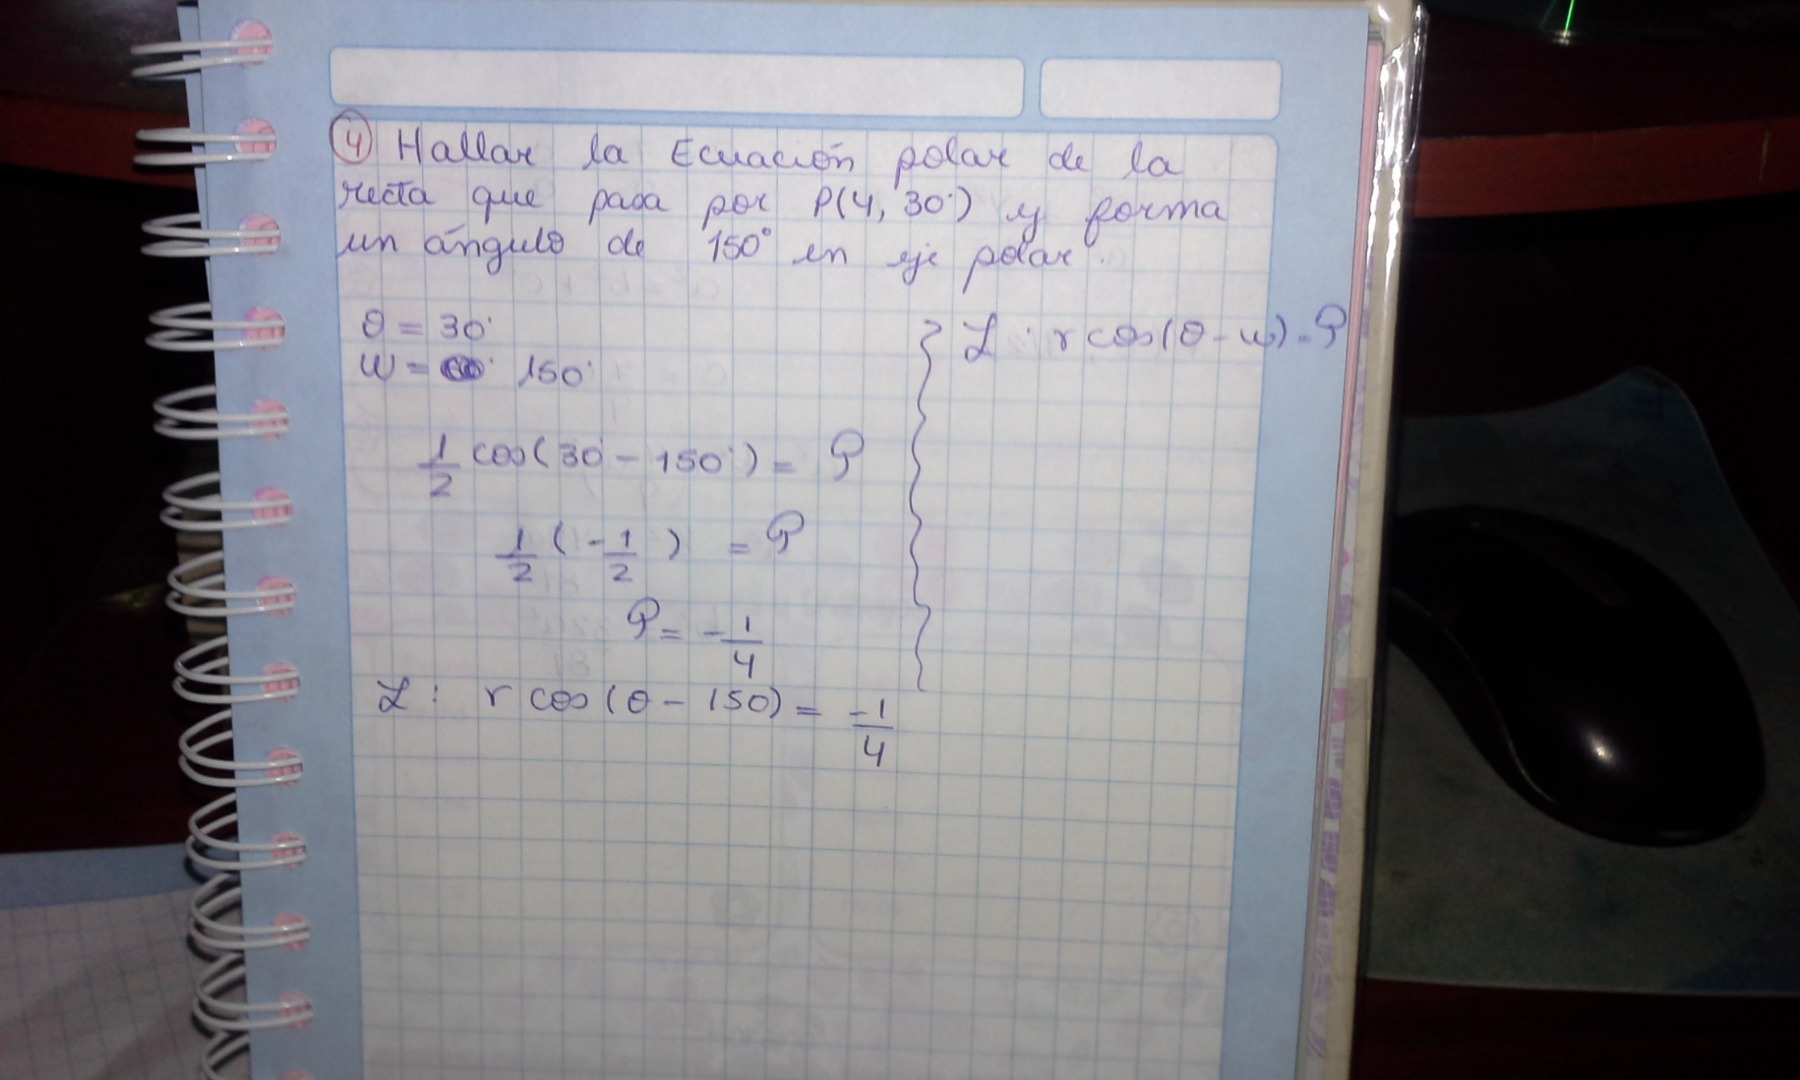 4 Hallar la Ecuación polar de la
recta que pasa por P(4, 30°) y forma
un ángulo de 150° en eje polar.
θ = 30°
w = 150°
L : r cos(θ - w) = P
1/2 cos(30 - 150°) = P
1/2 (-1/2) = P
P = -1/4
L : r cos(θ - 150) = -1/4